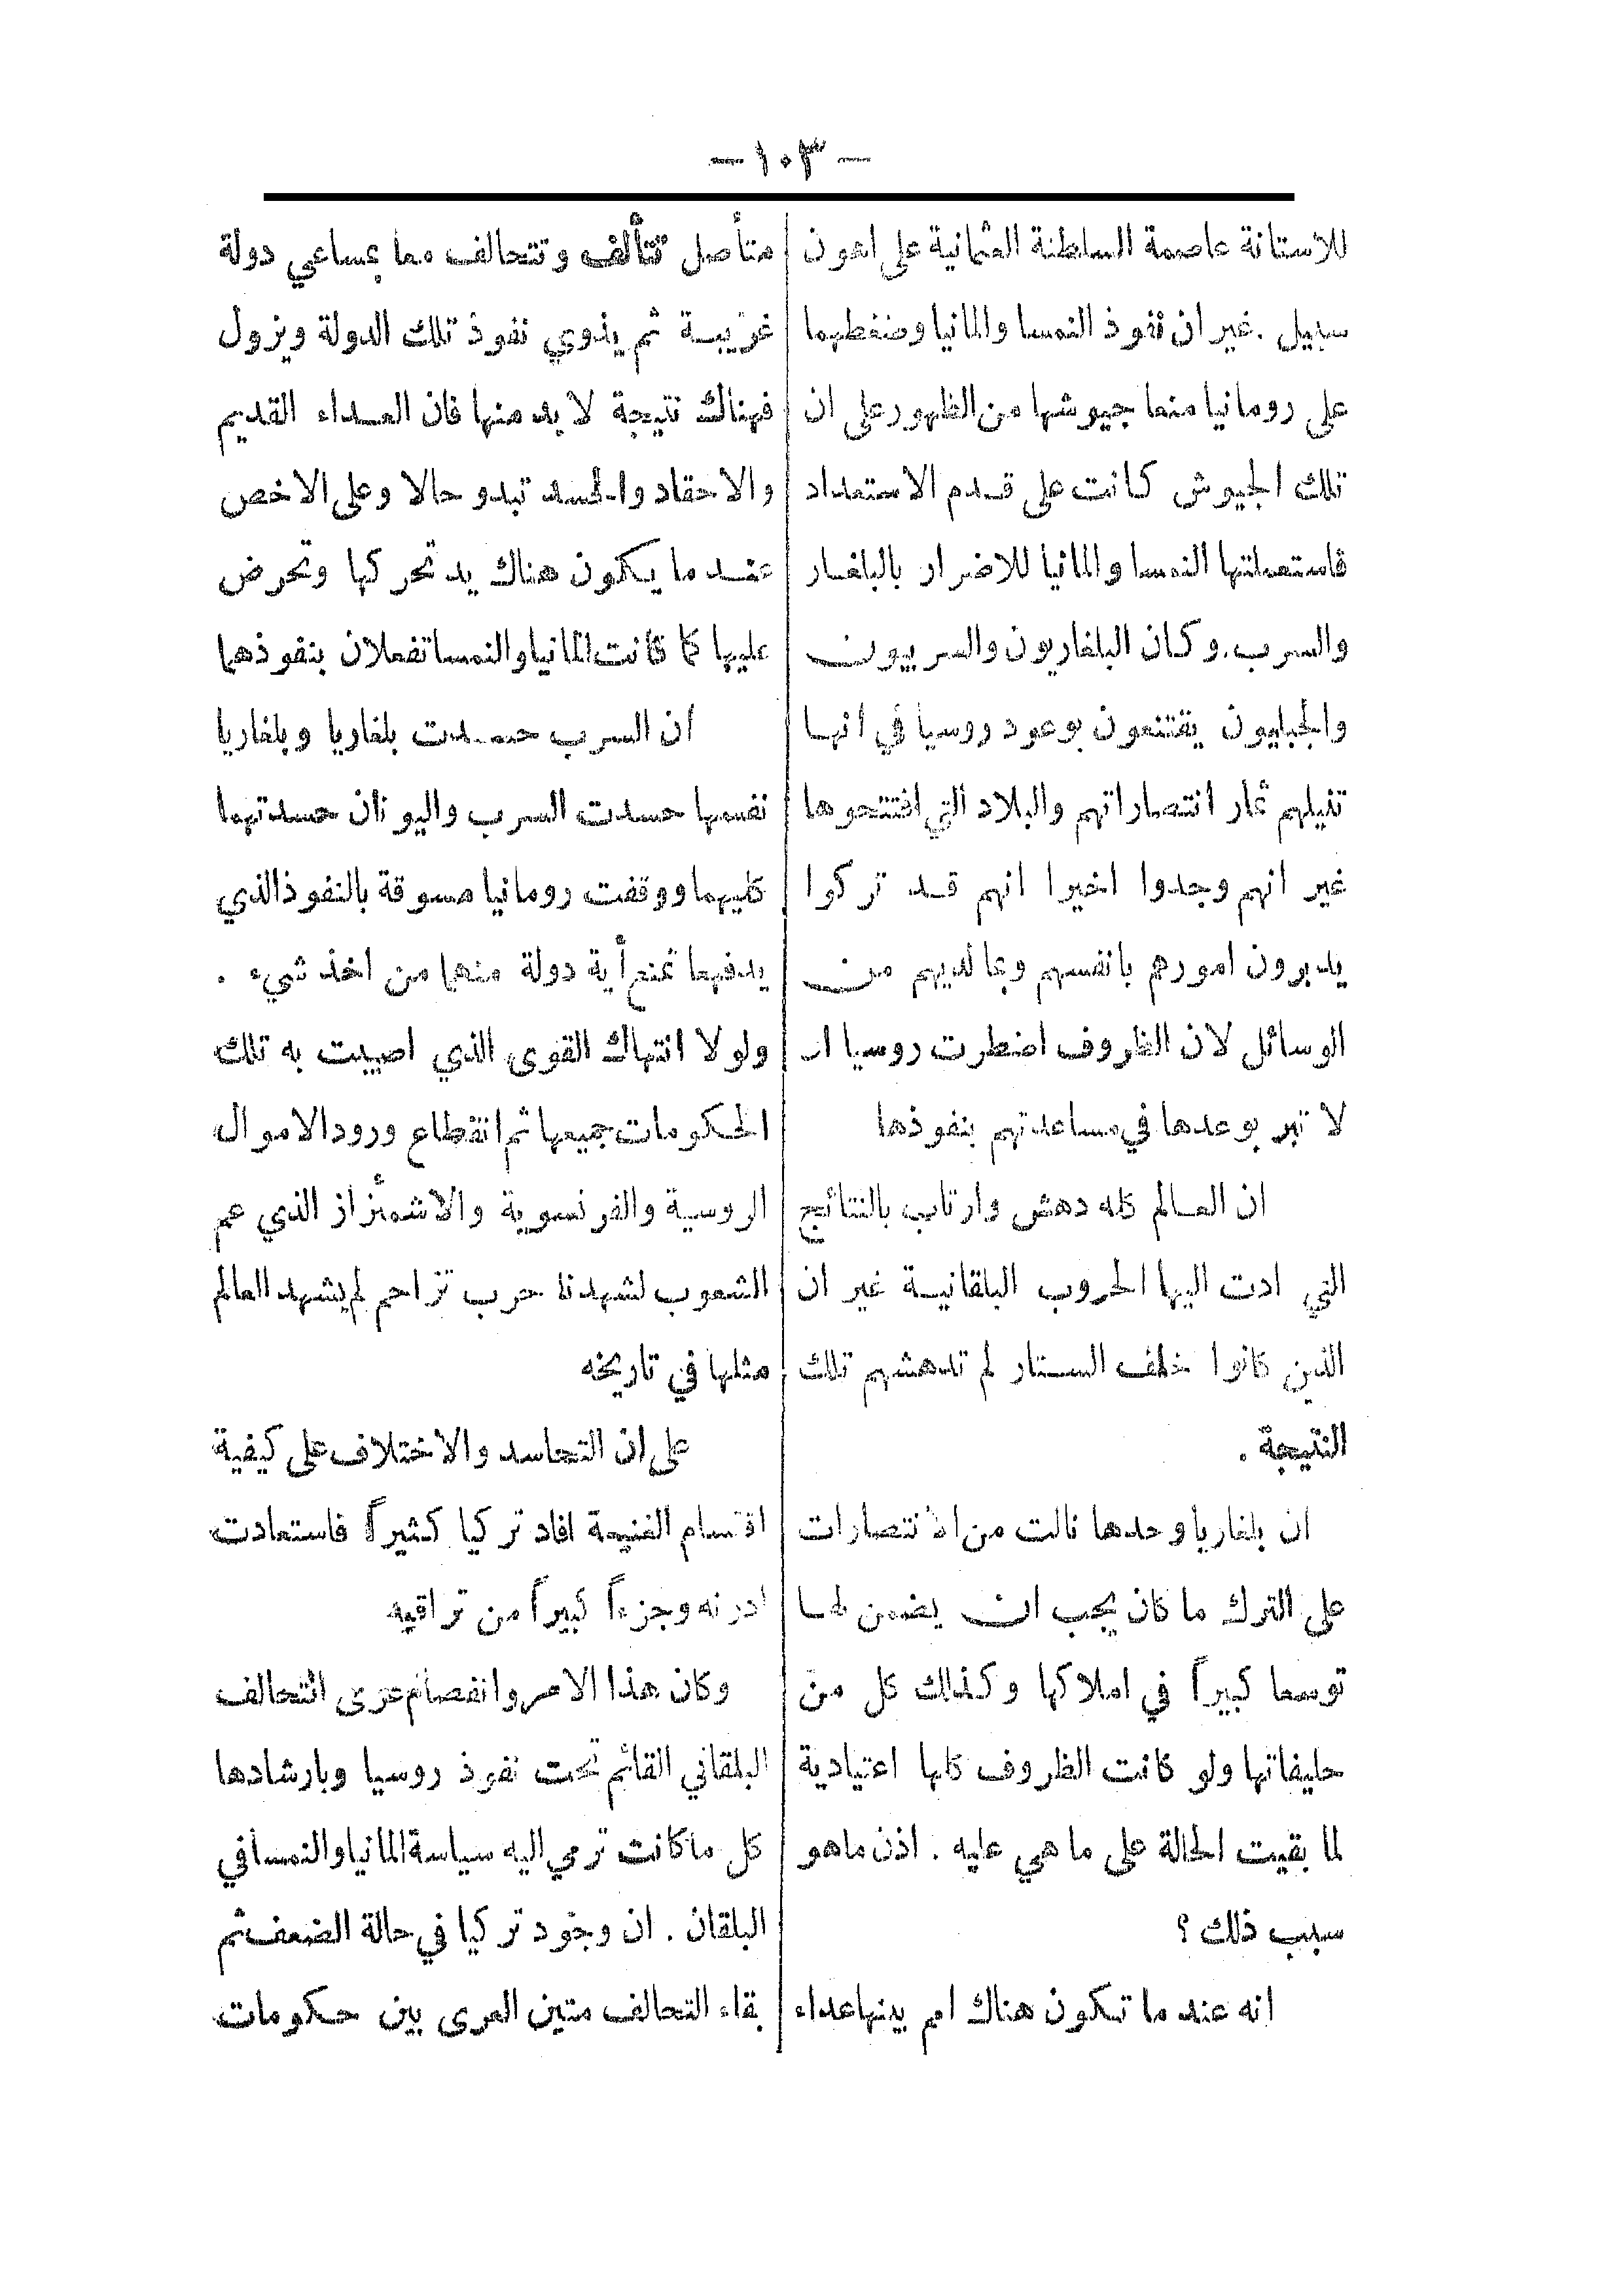 — ١٠٣ —
للاستانة عاصمة السلطنة العثمانية على اهون
سبيل . غير ان نفوذ النمسا والمانيا وضغطهما
على رومانيا منعا جيوشها من الظهور على ان
تلك الجيوش كانت على قدم الاستعداد
فاستعملتها النمسا والمانيا للاضرار بالبلغار
والسرب . وكان البلغاريون والسربيون
والجبليون يقتنعون بوعود روسيا في انها
تنيلهم ثمار انتصاراتهم والبلاد التي افتتحوها
غير انهم وجدوا اخيرا انهم قد تركوا
يدبرون امورهم بانفسهم وبما لديهم من
الوسائل لان الظروف اضطرت روسيا ان
لا تبر بوعدها في مساعدتهم بنفوذها
ان العالم كله دهش وارتاب بالنتائج
التي ادت اليها الحروب البلقانية غير ان
الذين كانوا خلف الستار لم تدهشهم تلك
النتيجة .
ان بلغاريا وحدها نالت من الانتصارات
على الترك ما كان يجب ان يضمن لها
توسعا كبيراً في املاكها وكذلك كل من
حليفاتها ولو كانت الظروف كلها اعتيادية
لما بقيت الحالة على ما هي عليه . اذن ماهو
سبب ذلك ؟
انه عند ما تكون هناك امم بينها عداء
متأصل تتألف وتتحالف معا بمساعي دولة
غريبة ثم يذوي نفوذ تلك الدولة ويزول
فهناك نتيجة لا بد منها فان العداء القديم
والاحقاد والحسد تبدو حالا وعلى الاخص
عند ما يكون هناك يد تحركها وتحرض
عليها كما كانت المانيا والنمسا تفعلان بنفوذهما
ان السرب حسدت بلغاريا وبلغاريا
نفسها حسدت السرب واليونان حسدتهما
كليهما ووقفت رومانيا مسوقة بالنفوذ الذي
يدفعها تمنع أية دولة منهما من اخذ شيء .
ولولا انتهاك القوى الذي اصيبت به تلك
الحكومات جميعها ثم انقطاع ورود الاموال
الروسية والفرنسوية والاشمئزاز الذي عم
الشعوب لشهدنا حرب تزاحم لم يشهد العالم
مثلها في تاريخه
على ان التحاسد والاختلاف على كيفية
اقتسام الغنيمة افاد تركيا كثيراً فاستعادت
ادرنه وجزءاً كبيراً من تراقيه
وكان هذا الامر وانفصام عرى التحالف
البلقاني القائم تحت نفوذ روسيا وبارشادها
كل ما كانت ترمي اليه سياسة المانيا والنمسا في
البلقان . ان وجود تركيا في حالة الضعف ثم
بقاء التحالف متين العرى بين حكومات